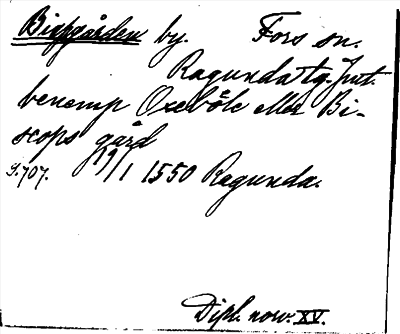 Bispgården by. Fors sn.
Ragunda tg. Jmt.
benemp Oxeböle eller Bi-
scops gård
S. 707. 19/1 1550 Ragunda.
Dipl. norv. XV.